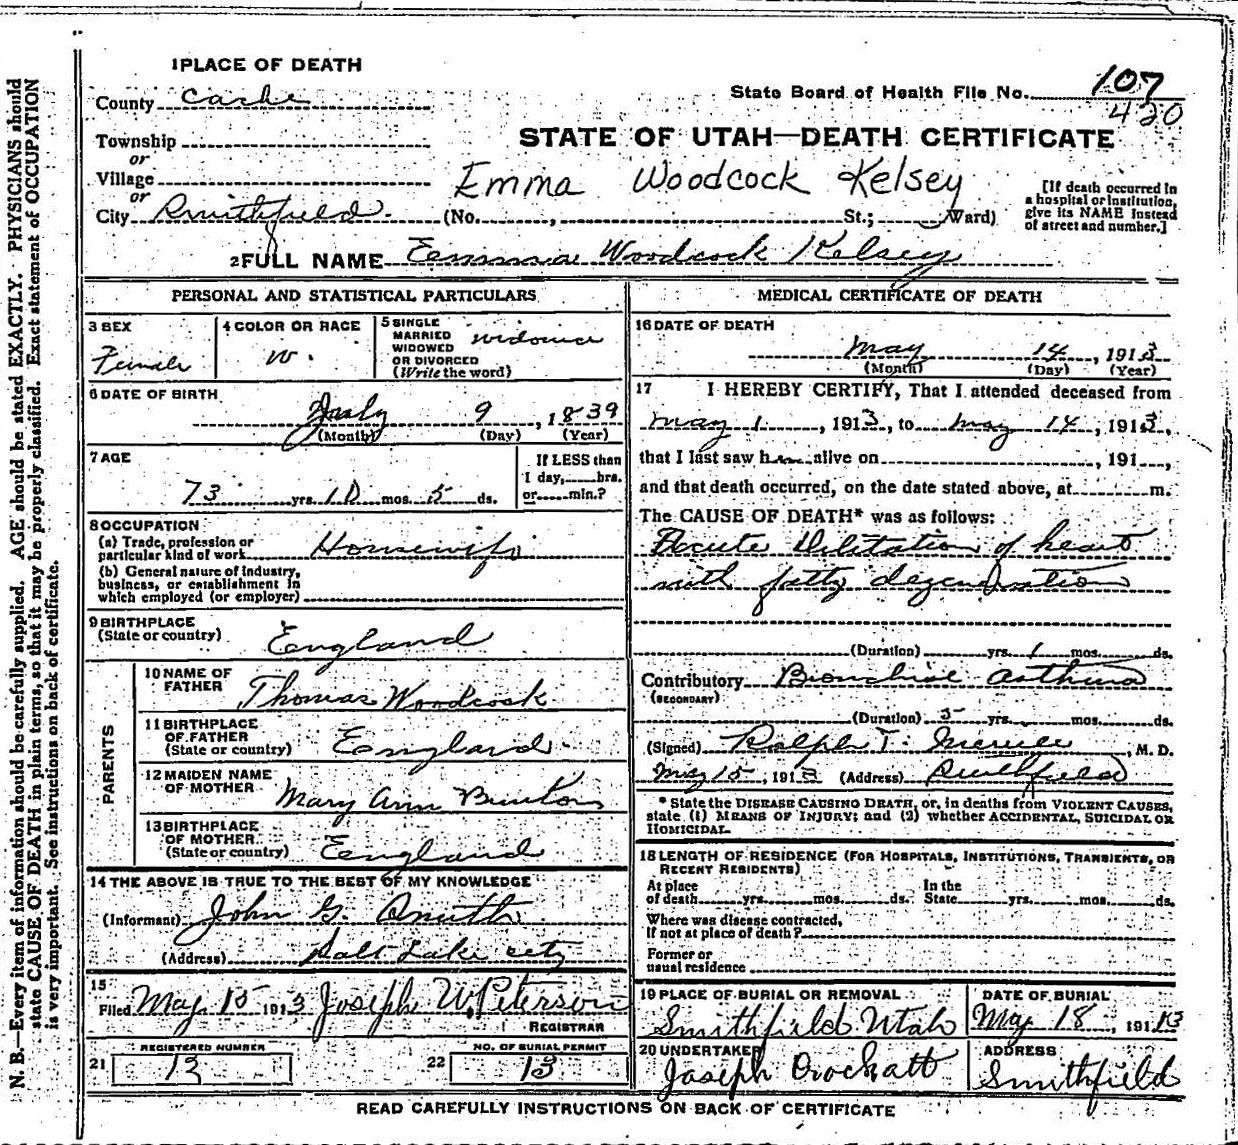 N. B.—Every item of information should be carefully supplied. AGE should be stated EXACTLY. PHYSICIANS should
state CAUSE OF DEATH in plain terms, so that it may be properly classified. Exact statement of OCCUPATION
is very important. See instructions on back of certificate.
1 PLACE OF DEATH
County Cache
State Board of Health File No. 107
420
Township
or
STATE OF UTAH—DEATH CERTIFICATE
Village
or
Emma Woodcock Kelsey
City Smithfield (No. , St.; Ward)
[If death occurred in
a hospital or institution,
give its NAME instead
of street and number.]
2 FULL NAME Emma Woodcock Kelsey
PERSONAL AND STATISTICAL PARTICULARS
3 SEX
Female
4 COLOR OR RACE
W.
5 SINGLE
MARRIED
WIDOWED
OR DIVORCED
(Write the word)
widow
6 DATE OF BIRTH
July 9, 1839
(Month) (Day) (Year)
7 AGE
73 yrs. 10 mos. 5 ds.
If LESS than
1 day, hrs.
or min.?
8 OCCUPATION
(a) Trade, profession or
particular kind of work Housewife
(b) General nature of industry,
business, or establishment in
which employed (or employer)
9 BIRTHPLACE
(State or country) England
PARENTS
10 NAME OF
FATHER Thomas Woodcock
11 BIRTHPLACE
OF FATHER
(State or country) England
12 MAIDEN NAME
OF MOTHER Mary Ann Bunton
13 BIRTHPLACE
OF MOTHER
(State or country) England
14 THE ABOVE IS TRUE TO THE BEST OF MY KNOWLEDGE
(Informant) John G. Smith
(Address) Salt Lake City
15
Filed May 15 1913 Joseph W. Peterson
REGISTRAR
21 REGISTERED NUMBER
13
22 NO. OF BURIAL PERMIT
13
MEDICAL CERTIFICATE OF DEATH
16 DATE OF DEATH
May 14, 1913
(Month) (Day) (Year)
17 I HEREBY CERTIFY, That I attended deceased from
May 1, 1913, to May 14, 1913,
that I last saw her alive on , 191 ,
and that death occurred, on the date stated above, at m.
The CAUSE OF DEATH* was as follows:
Acute Dilitation of heart
with fatty degeneration
(Duration) yrs. 1 mos. ds.
Contributory Bronchial asthma
(SECONDARY)
(Duration) 5 yrs. mos. ds.
(Signed) Ralph T. Merrill, M. D.
May 15, 1913 (Address) Smithfield
* State the DISEASE CAUSING DEATH, or, in deaths from VIOLENT CAUSES,
state (1) MEANS OF INJURY; and (2) whether ACCIDENTAL, SUICIDAL OR
HOMICIDAL.
18 LENGTH OF RESIDENCE (FOR HOSPITALS, INSTITUTIONS, TRANSIENTS, OR
RECENT RESIDENTS)
At place
of death yrs. mos. ds.
In the
State yrs. mos. ds.
Where was disease contracted,
If not at place of death?
Former or
usual residence
19 PLACE OF BURIAL OR REMOVAL
Smithfield Utah
DATE OF BURIAL
May 18, 19113
20 UNDERTAKER
Joseph Crockatt
ADDRESS
Smithfield
READ CAREFULLY INSTRUCTIONS ON BACK OF CERTIFICATE